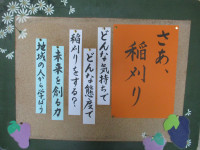 さあ、
稲刈り
どんな気持ちで
どんな態度で
稲刈りをする?
未来を創る力
地域の人から学ぼう